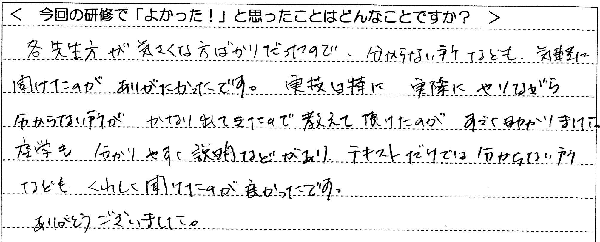 < 今回の研修で「よかった！」と思ったことはどんなことですか？ >
各先生方が気さくな方ばかりだったので、分からない所なども、気軽に
聞けたのがありがたかったです。実技は特に実際にやりながら
分からない所がかなり出てきたので教えて頂けたのがすごく助かりました。
座学も分かりやすく説明などがあり、テキストだけでは分からない所
なども くわしく聞けたのが良かったです。
ありがとうございました。